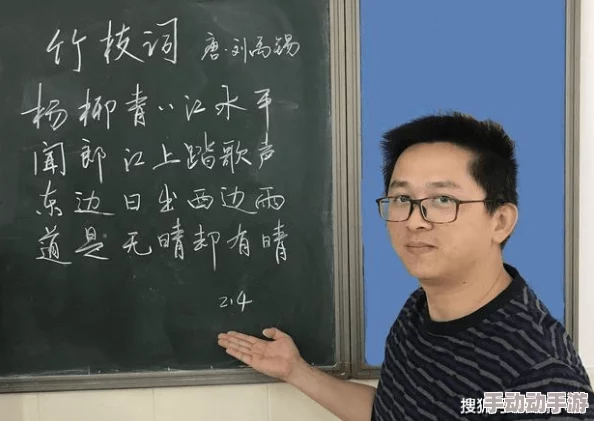 竹枝词 唐·刘禹锡
杨柳青〃江水平
闻郎江上踏歌声
东边日出西边雨
道是无晴却有晴
2.4
搜狐
手动动手游